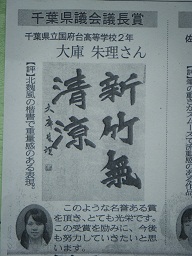 千葉県議会議長賞
千葉県立国府台高等学校2年
大庫 朱理さん
新竹氣
清涼
大庫朱理
【評】北魏風の楷書で重量感のある表現。
このような名誉ある賞
を頂き、とても光栄です。
この受賞を励みに、今後
も努力していきたいと思
います。